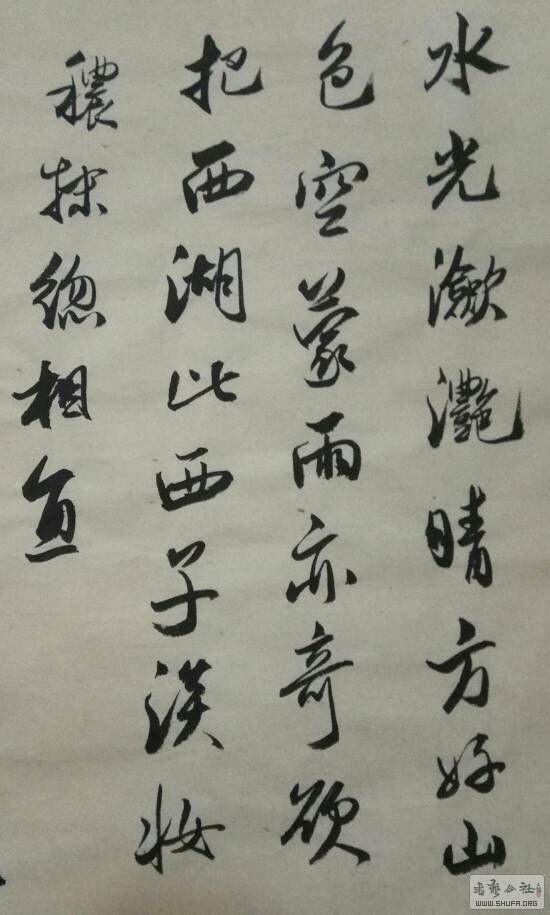 水光瀲灧晴方好山
色空蒙雨亦奇欲
把西湖比西子淡妝
穠抹總相宜
書藝公社
WWW.SHUFA.ORG